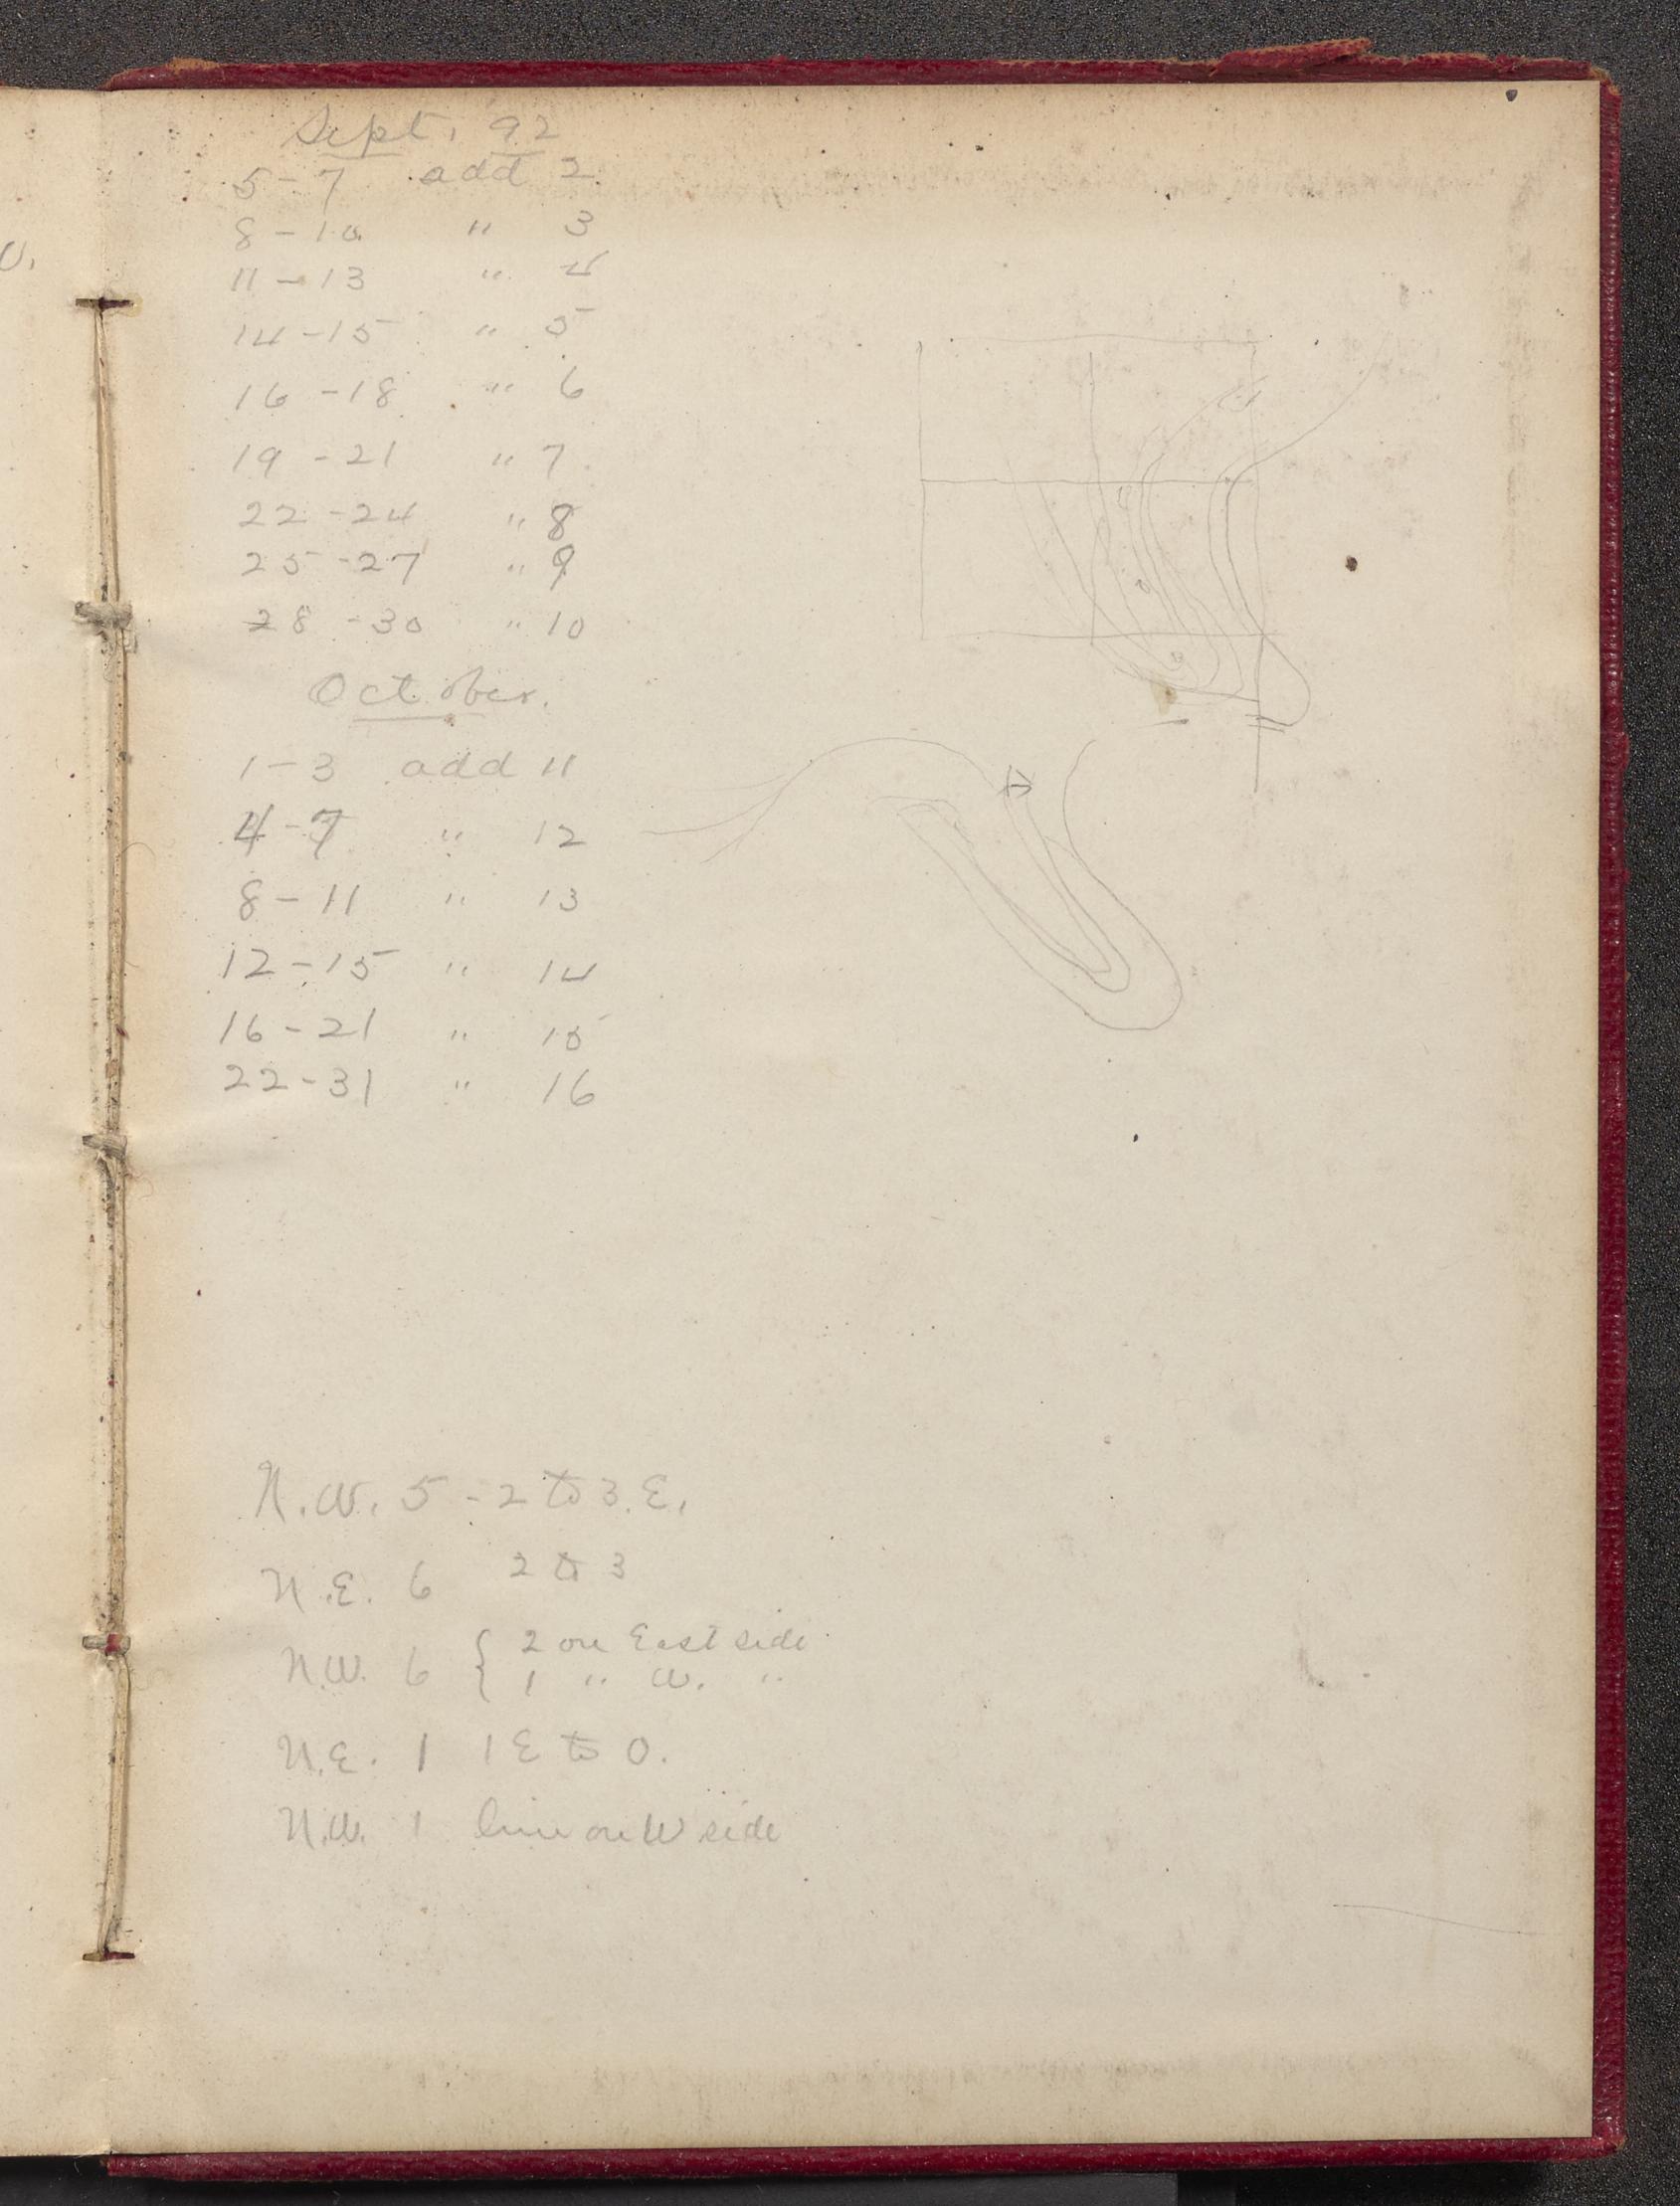 Sept. 92
5-7 add 2
8-10 " 3
11-13 " 4
14-15 " 5
16-18 " 6
19-21 " 7
22-24 " 8
25-27 " 9
28-30 " 10
October.
1-3 add 11
4-7 " 12
8-11 " 13
12-15 " 14
16-21 " 15
22-31 " 16
N.W. 5 - 2 to 3 E.
N.E. 6 2 to 3
N.W. 6 { 2 on East side
1 " W. "
N.E. 1 1 E to 0.
N.W. 1 line on W side